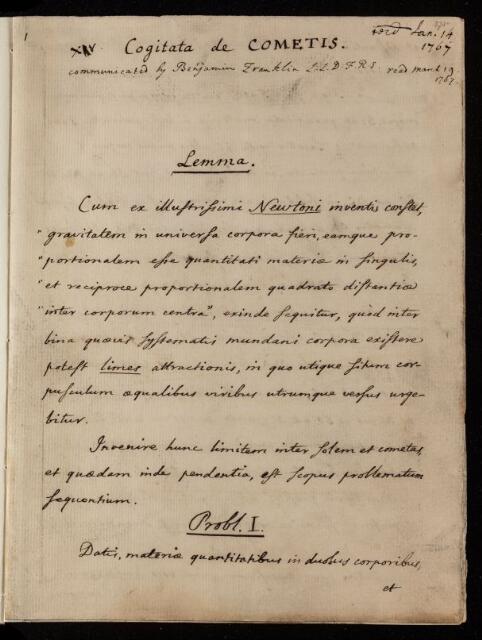 1
recd Jan. 14
1767
XIV Cogitata de COMETIS.
communicated by Benjamin Franklin L.L.D.F.R.S. read March 19
1767.
Lemma.
Cum ex illustrissimi Newtoni inventis constet,
" gravitatem in universa corpora fieri, eamque pro-
" portionalem esse quantitati materiæ in singulis,
" et reciproce proportionalem quadrato distantiæ
" inter corporum centra", exinde sequitur, quòd inter
bina quævis systematis mundani corpora existere
potest limes attractionis, in quo utique situm cor-
pusculum æqualibus viribus utrumque versus urge-
bitur.
Invenire hunc limitem inter solem et cometas,
et quædam inde pendentia, est scopus problematum
sequentium.
Probl. I.
Datis, materiæ quantitatibus in duobus corporibus,
et